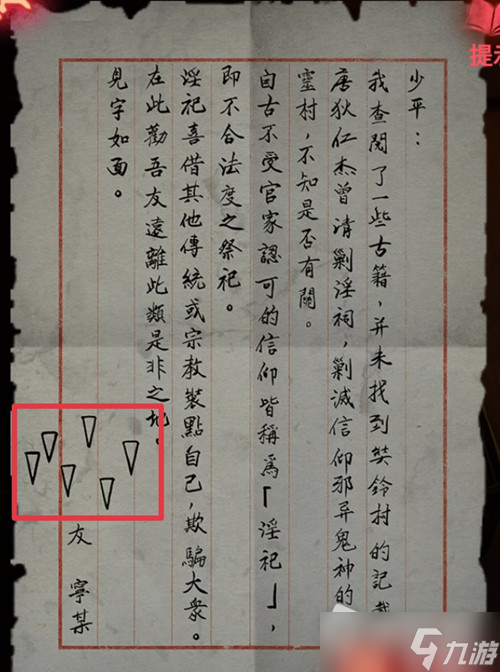 提示
少平：
我查閱了一些古籍，并未找到奘鈴村的記載
唐狄仁杰曾清剿淫祠，剿滅信仰邪異鬼神的
靈村，不知是否有關。
自古不受官家認可的信仰皆稱爲「淫祀」，
即不合法度之祭祀。
淫祀喜借其他傳統或宗教裝點自己，欺騙大衆。
在此勸吾友遠離此類是非之地。
見字如面。
友 寧某
九游